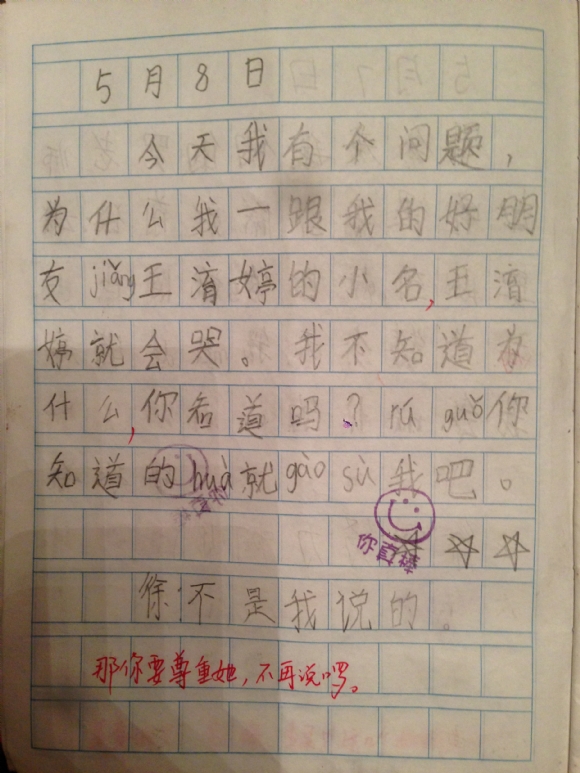 5月8日
今天我有个问题，
为什么我一跟我的好朋
友jiǎng王淯婷的小名，王淯
婷就会哭。我不知道为
什么，你知道吗？rú guǒ你
知道的huà就gào sù我吧。
你真棒
徐不是我说的。
那你要尊重她，不再说啰。